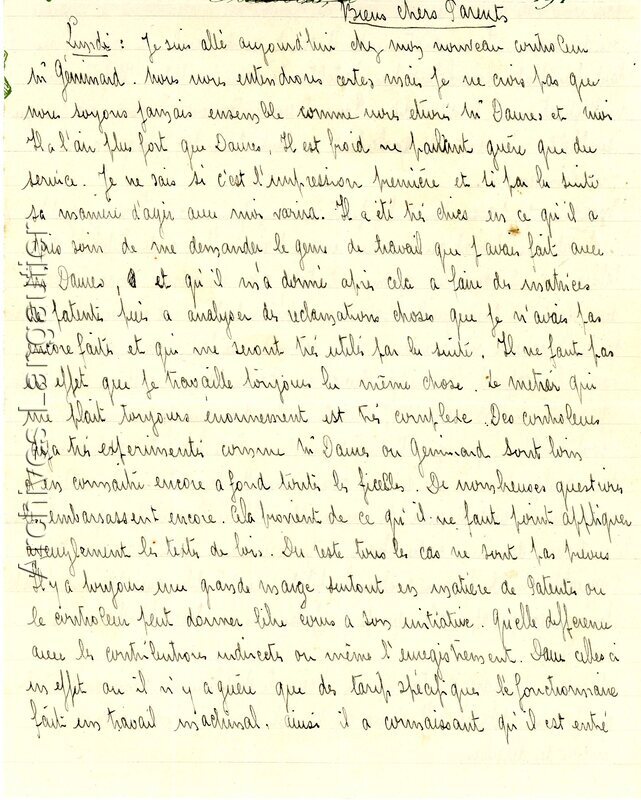 Biens chers Parents
Lundi : Je suis allé aujourd'hui chez mon nouveau controleur
Mr Gémimard. Nous nous entendrons certes mais je ne crois pas que
nous soyons jamais ensemble comme nous étions Mr Daures et moi
Il a l'air plus fort que Daures, Il est froid ne parlant guère que du
service. Je ne sais si c'est l'impression première et si par la suite
sa manière d'agir avec moi variera. Il a été très chics en ce qu'il a
pris soin de me demander le genre de travail que j'avais fait avec
Mr Daures, et qu'il m'a donné après cela a faire des matrices
de patentes puis a analyser des reclamations choses que je n'avais pas
encore faites et qui me seront très utiles par la suite. Il ne faut pas
en effet que je travaille toujours la même chose. Le metier qui
me plait toujours énormement est très complexe. Des controleurs
deja très experimentés comme Mr Daures ou Gemimard sont loins
d'en connaitre encore a fond toutes les ficelles. De nombreuses questions
les embarrassent encore. Cela provient de ce qu'il ne faut point appliquer
aveuglement les textes de lois. Du reste tous les cas ne sont pas prevus
Il y a toujours une grande marge surtout en matière de Patentes ou
le controleur peut donner libre cours a son initiative. Quelle difference
avec les contributions indirectes ou même l'enregistrement. Dans celles ci
en effet ou il n'y a guère que des tarifs spécifiques le fonctionnaire
fait un travail machinal. Aussi il a connaissant qu'il est entré